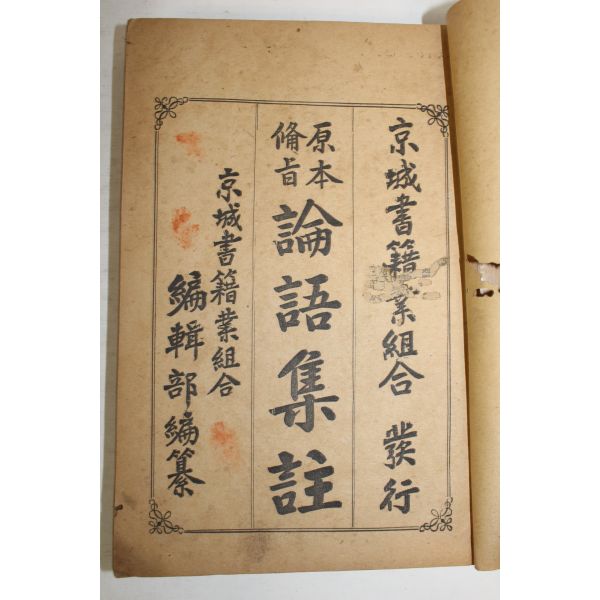 京城書籍業組合 發行
原本
備旨
論語集註
京城書籍業組合
編輯部編纂